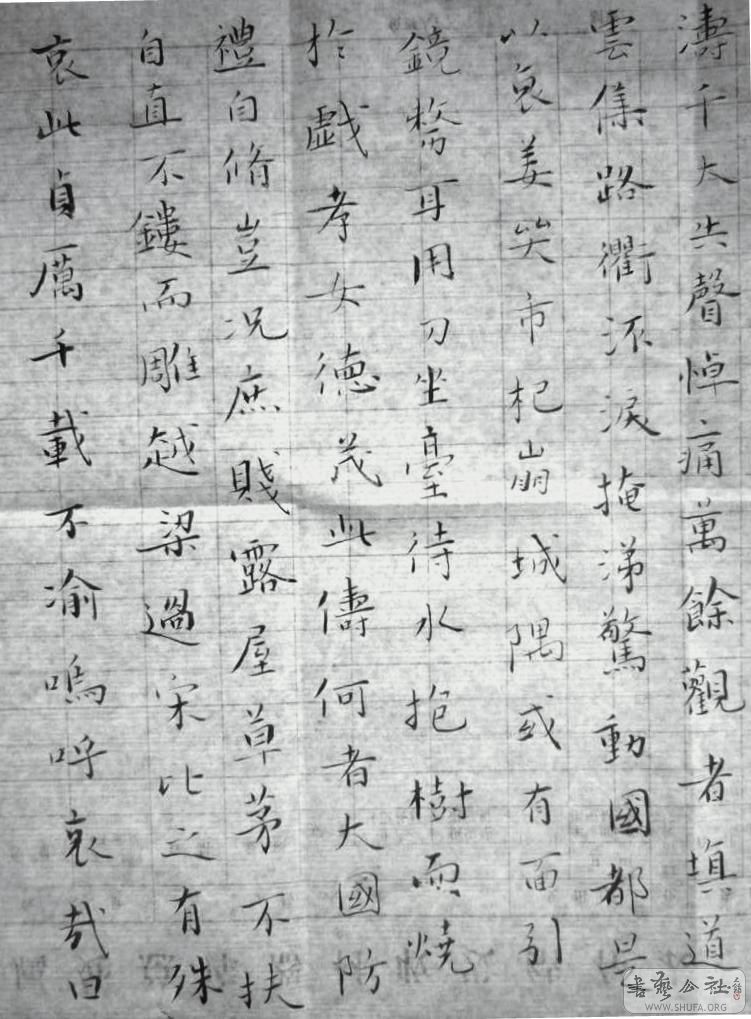 濤千大失聲悼痛萬餘觀者填道
雲集路衢流淚掩涕驚動國都是
以哀姜哭市杞崩城隅或有面引
鏡剺耳用刀坐臺待水抱樹而燒
於戲孝女德茂此儔何者大國防
禮自脩豈況庶賤露屋草茅不扶
自直不鏤而雕越梁過宋比之有殊
哀此貞厲千載不渝嗚呼哀哉曰
書藝公社
WWW.SHUFA.ORG